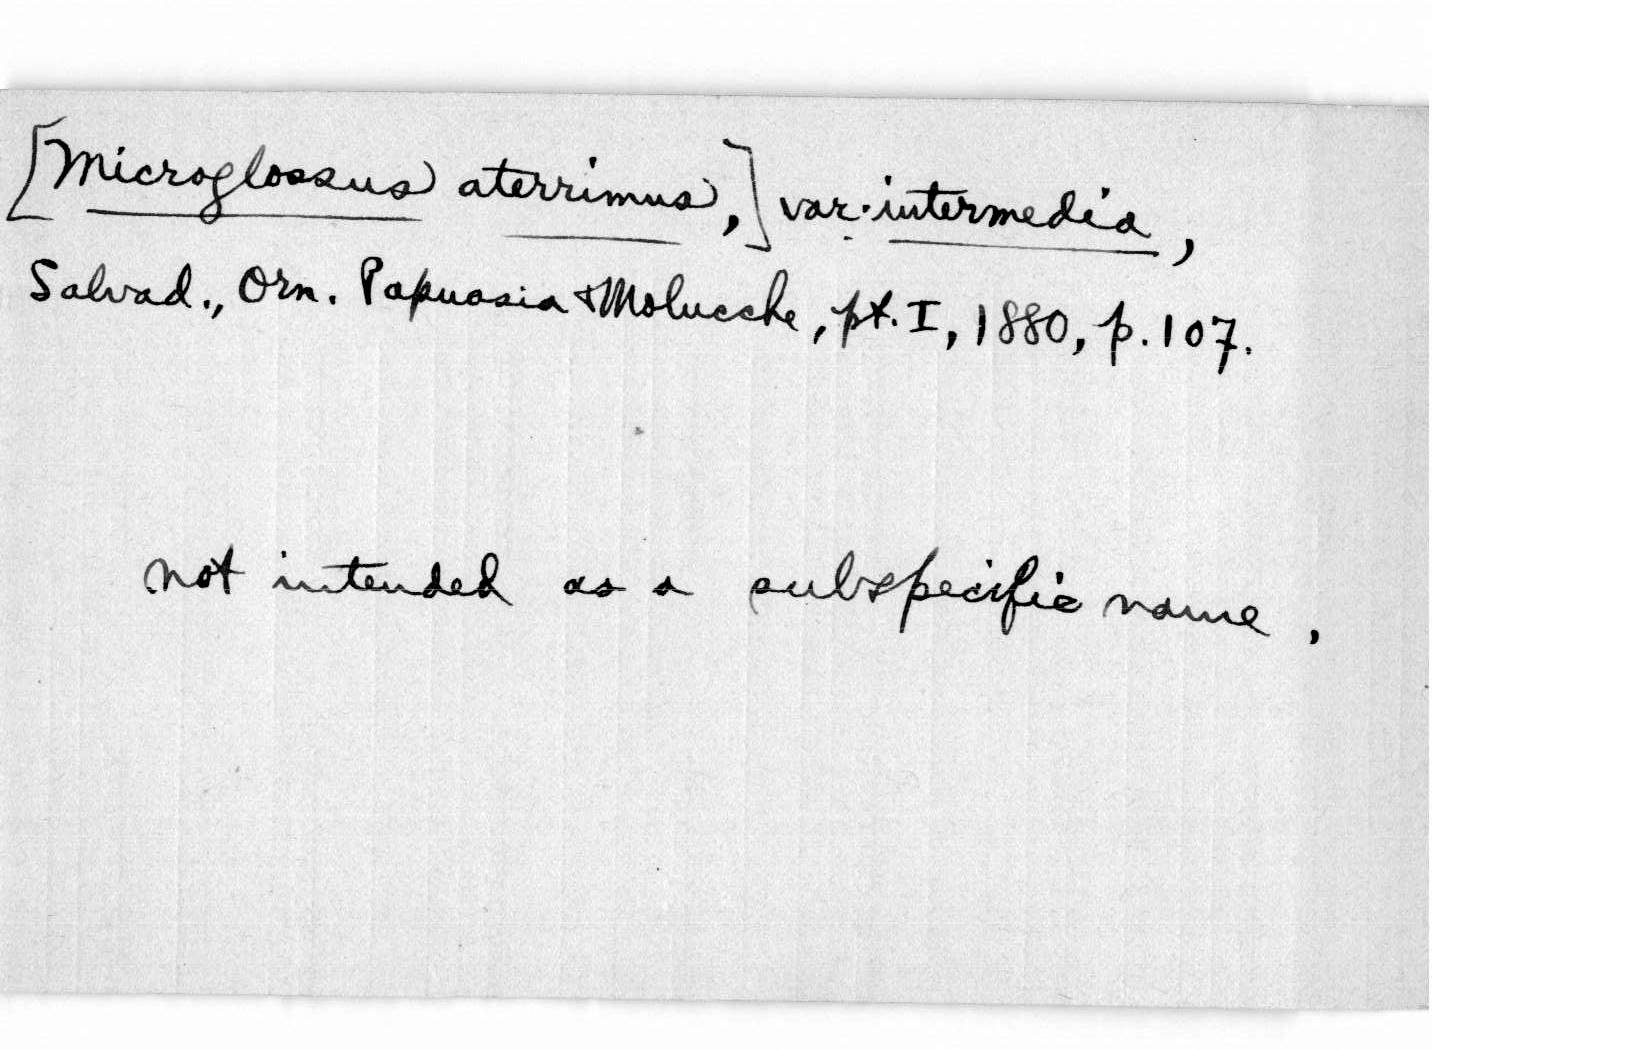 [Microglossus aterrimus,] var. intermedia,
Salvad., Orn. Papuasia & Molucche, pt. I, 1880, p. 107.
not intended as a subspecific name,